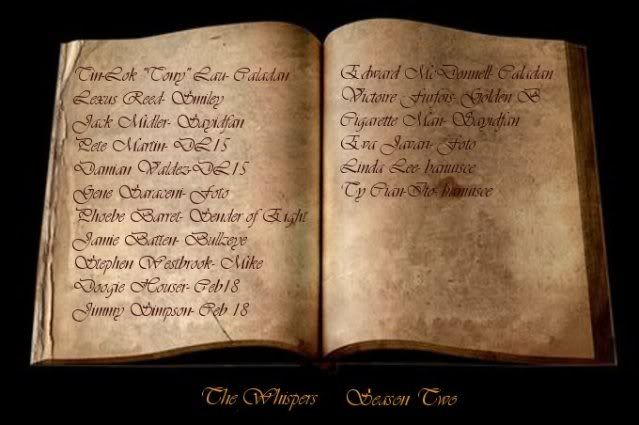 Tin-Lok "Tony" Lau- Caladan
Lexus Reed- Smiley
Jack Midler- Sayidfan
Pete Martin- DL15
Damian Waldez-DL15
Gene Saraceni- Foto
Phoebe Barret- Sender of Eight
Jamie Batten- Bullzeye
Stephen Westbrook- Mike
Doogie Houser- Ceb18
Jimmy Simpson- Ceb 18
Edward McDonnell- Caladan
Victoire Furtois- Golden B
Cigarette Man- Sayidfan
Eva Javan- Foto
Linda Lee- banuisee
Ty Cian-Ito- banuisee
The Whispers Season Two